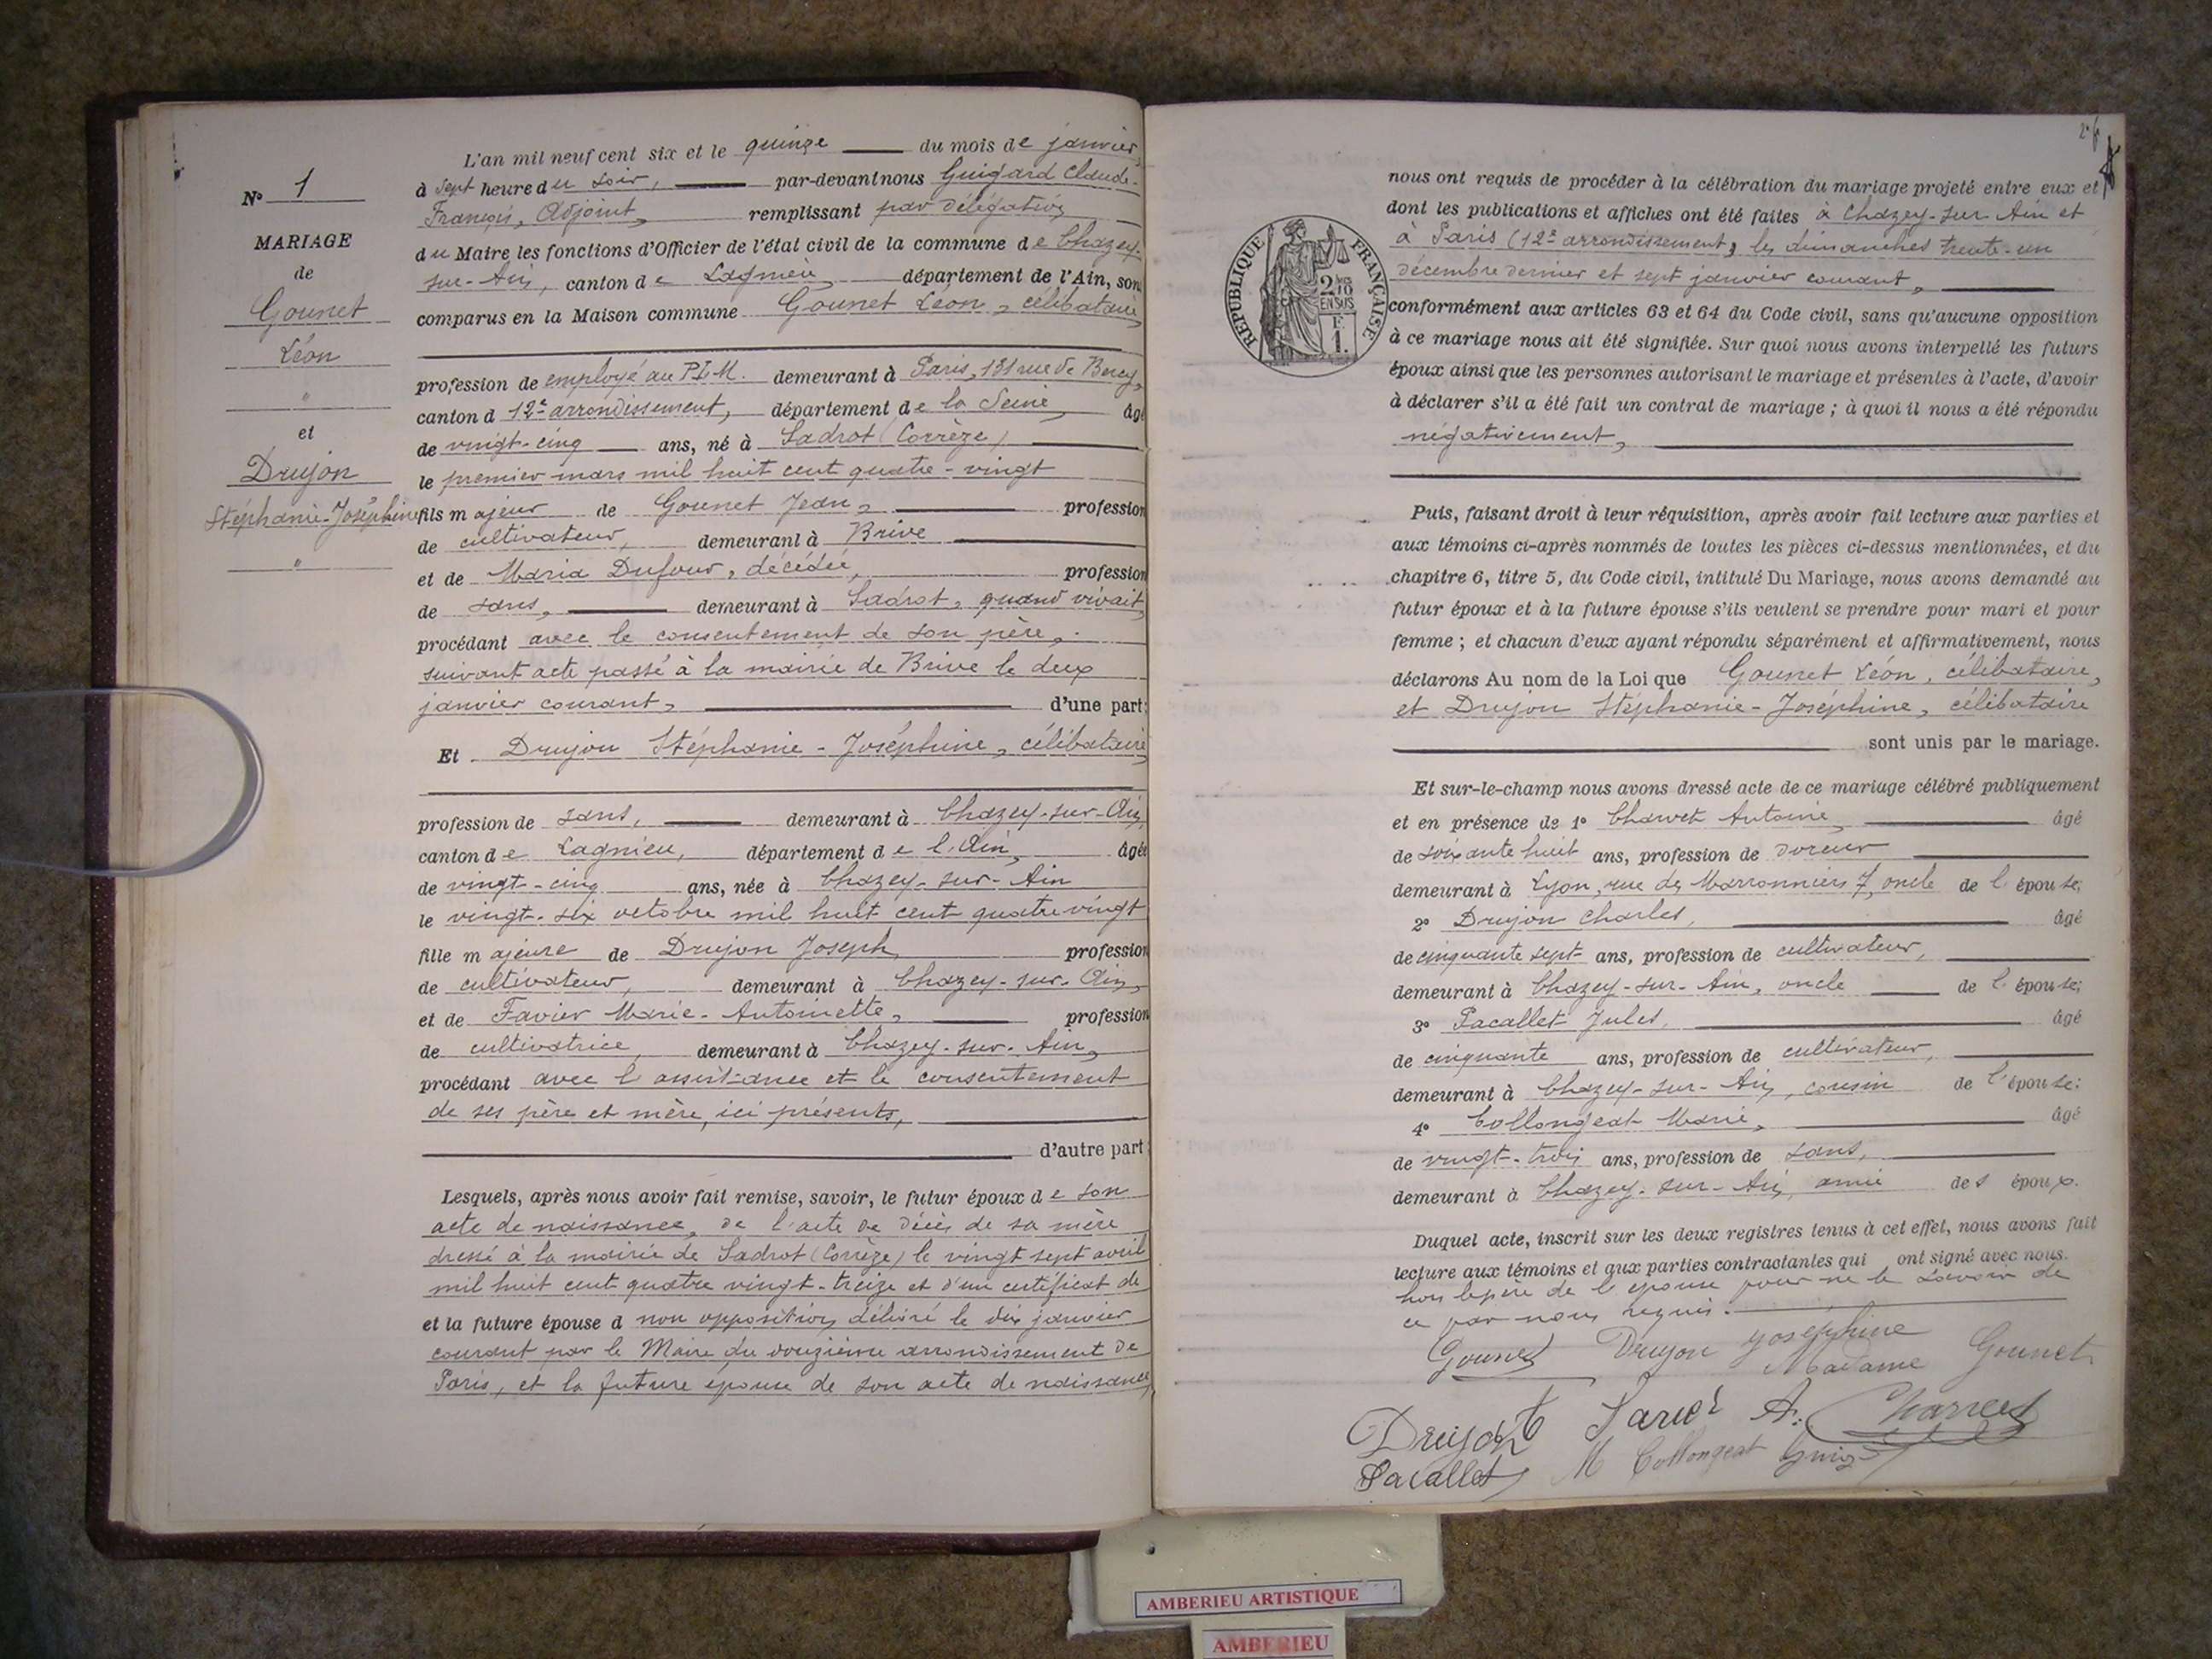 N° 1
MARIAGE
de
Gounet
Léon
"
et
Drujon
Stéphanie-Joséphine
"
L'an mil neuf cent six et le quinze du mois de janvier,
à sept heure du soir, par-devant nous Guigard Claude-
François, Adjoint, remplissant par délégation
du Maire les fonctions d'Officier de l'état civil de la commune de Chazey-
sur-Ain, canton de Lagnieu département de l'Ain, son
comparus en la Maison commune Gounet Léon, célibataire,
profession de employé au P.L.M. demeurant à Paris, 131 rue de Bercy,
canton d 12e arrondissement, département de la Seine, âgé
de vingt-cinq ans, né à Sadrot (Corrèze)
le premier mars mil huit cent quatre-vingt
fils majeur de Gounet Jean, profession
de cultivateur, demeurant à Brive
et de Maria Dufour, décédée, profession
de sans, demeurant à Sadrot, quand vivait,
procédant avec le consentement de son père,
suivant acte passé à la mairie de Brive le deux
janvier courant, d'une part;
Et Drujon Stéphanie-Joséphine, célibataire
profession de sans, demeurant à Chazey-sur-Ain,
canton de Lagnieu, département de l'Ain, âgée
de vingt-cinq ans, née à Chazey-sur-Ain
le vingt-six octobre mil huit cent quatre vingt
fille majeure de Drujon Joseph, profession
de cultivateur, demeurant à Chazey-sur-Ain,
et de Favier Marie-Antoinette, profession
de cultivatrice, demeurant à Chazey-sur-Ain,
procédant avec l'assistance et le consentement
de ses père et mère, ici présents,
d'autre part;
Lesquels, après nous avoir fait remise, savoir, le futur époux de son
acte de naissance, de l'acte de décès de sa mère
dressé à la mairie de Sadrot (Corrèze) le vingt sept avril
mil huit cent quatre vingt-treize et d'un certificat de
et la future épouse d non opposition délivré le dix janvier
courant par le Maire du douzième arrondissement de
Paris, et la future épouse de son acte de naissance,
nous ont requis de procéder à la célébration du mariage projeté entre eux et
dont les publications et affiches ont été faites à Chazey-sur-Ain et
à Paris (12e arrondissement), les dimanches trente-un
décembre dernier et sept janvier courant,
REPUBLIQUE FRANÇAISE
2/10
EN SUS
F
1.
conformément aux articles 63 et 64 du Code civil, sans qu'aucune opposition
à ce mariage nous ait été signifiée. Sur quoi nous avons interpellé les futurs
époux ainsi que les personnes autorisant le mariage et présentes à l'acte, d'avoir
à déclarer s'il a été fait un contrat de mariage; à quoi il nous a été répondu
négativement,
Puis, faisant droit à leur réquisition, après avoir fait lecture aux parties et
aux témoins ci-après nommés de toutes les pièces ci-dessus mentionnées, et du
chapitre 6, titre 5, du Code civil, intitulé Du Mariage, nous avons demandé au
futur époux et à la future épouse s'ils veulent se prendre pour mari et pour
femme; et chacun d'eux ayant répondu séparément et affirmativement, nous
déclarons Au nom de la Loi que Gounet Léon, célibataire,
et Drujon Stéphanie-Joséphine, célibataire
sont unis par le mariage.
Et sur-le-champ nous avons dressé acte de ce mariage célébré publiquement
et en présence de 1° Charvet Antoine, âgé
de soixante huit ans, profession de doreur
demeurant à Lyon, rue des Marronniers 7, oncle de l'épouse;
2° Drujon Charles, âgé
de cinquante sept ans, profession de cultivateur,
demeurant à Chazey-sur-Ain, oncle de l'épouse;
3° Pacallet Jules, âgé
de cinquante ans, profession de cultivateur,
demeurant à Chazey-sur-Ain, cousin de l'épouse;
4° Collongeat Marie, âgé
de vingt-trois ans, profession de sans,
demeurant à Chazey-sur-Ain, amie des époux.
Duquel acte, inscrit sur les deux registres tenus à cet effet, nous avons fait
lecture aux témoins et aux parties contractantes qui ont signé avec nous.
hors le père de l'épouse pour ne le savoir de
ce par nous requis.
Gounet Drujon Joséphine
Madame Gounet
Drujon A. Charvet
Pacallet M Collongeat
AMBERIEU ARTISTIQUE
AMBERIEU